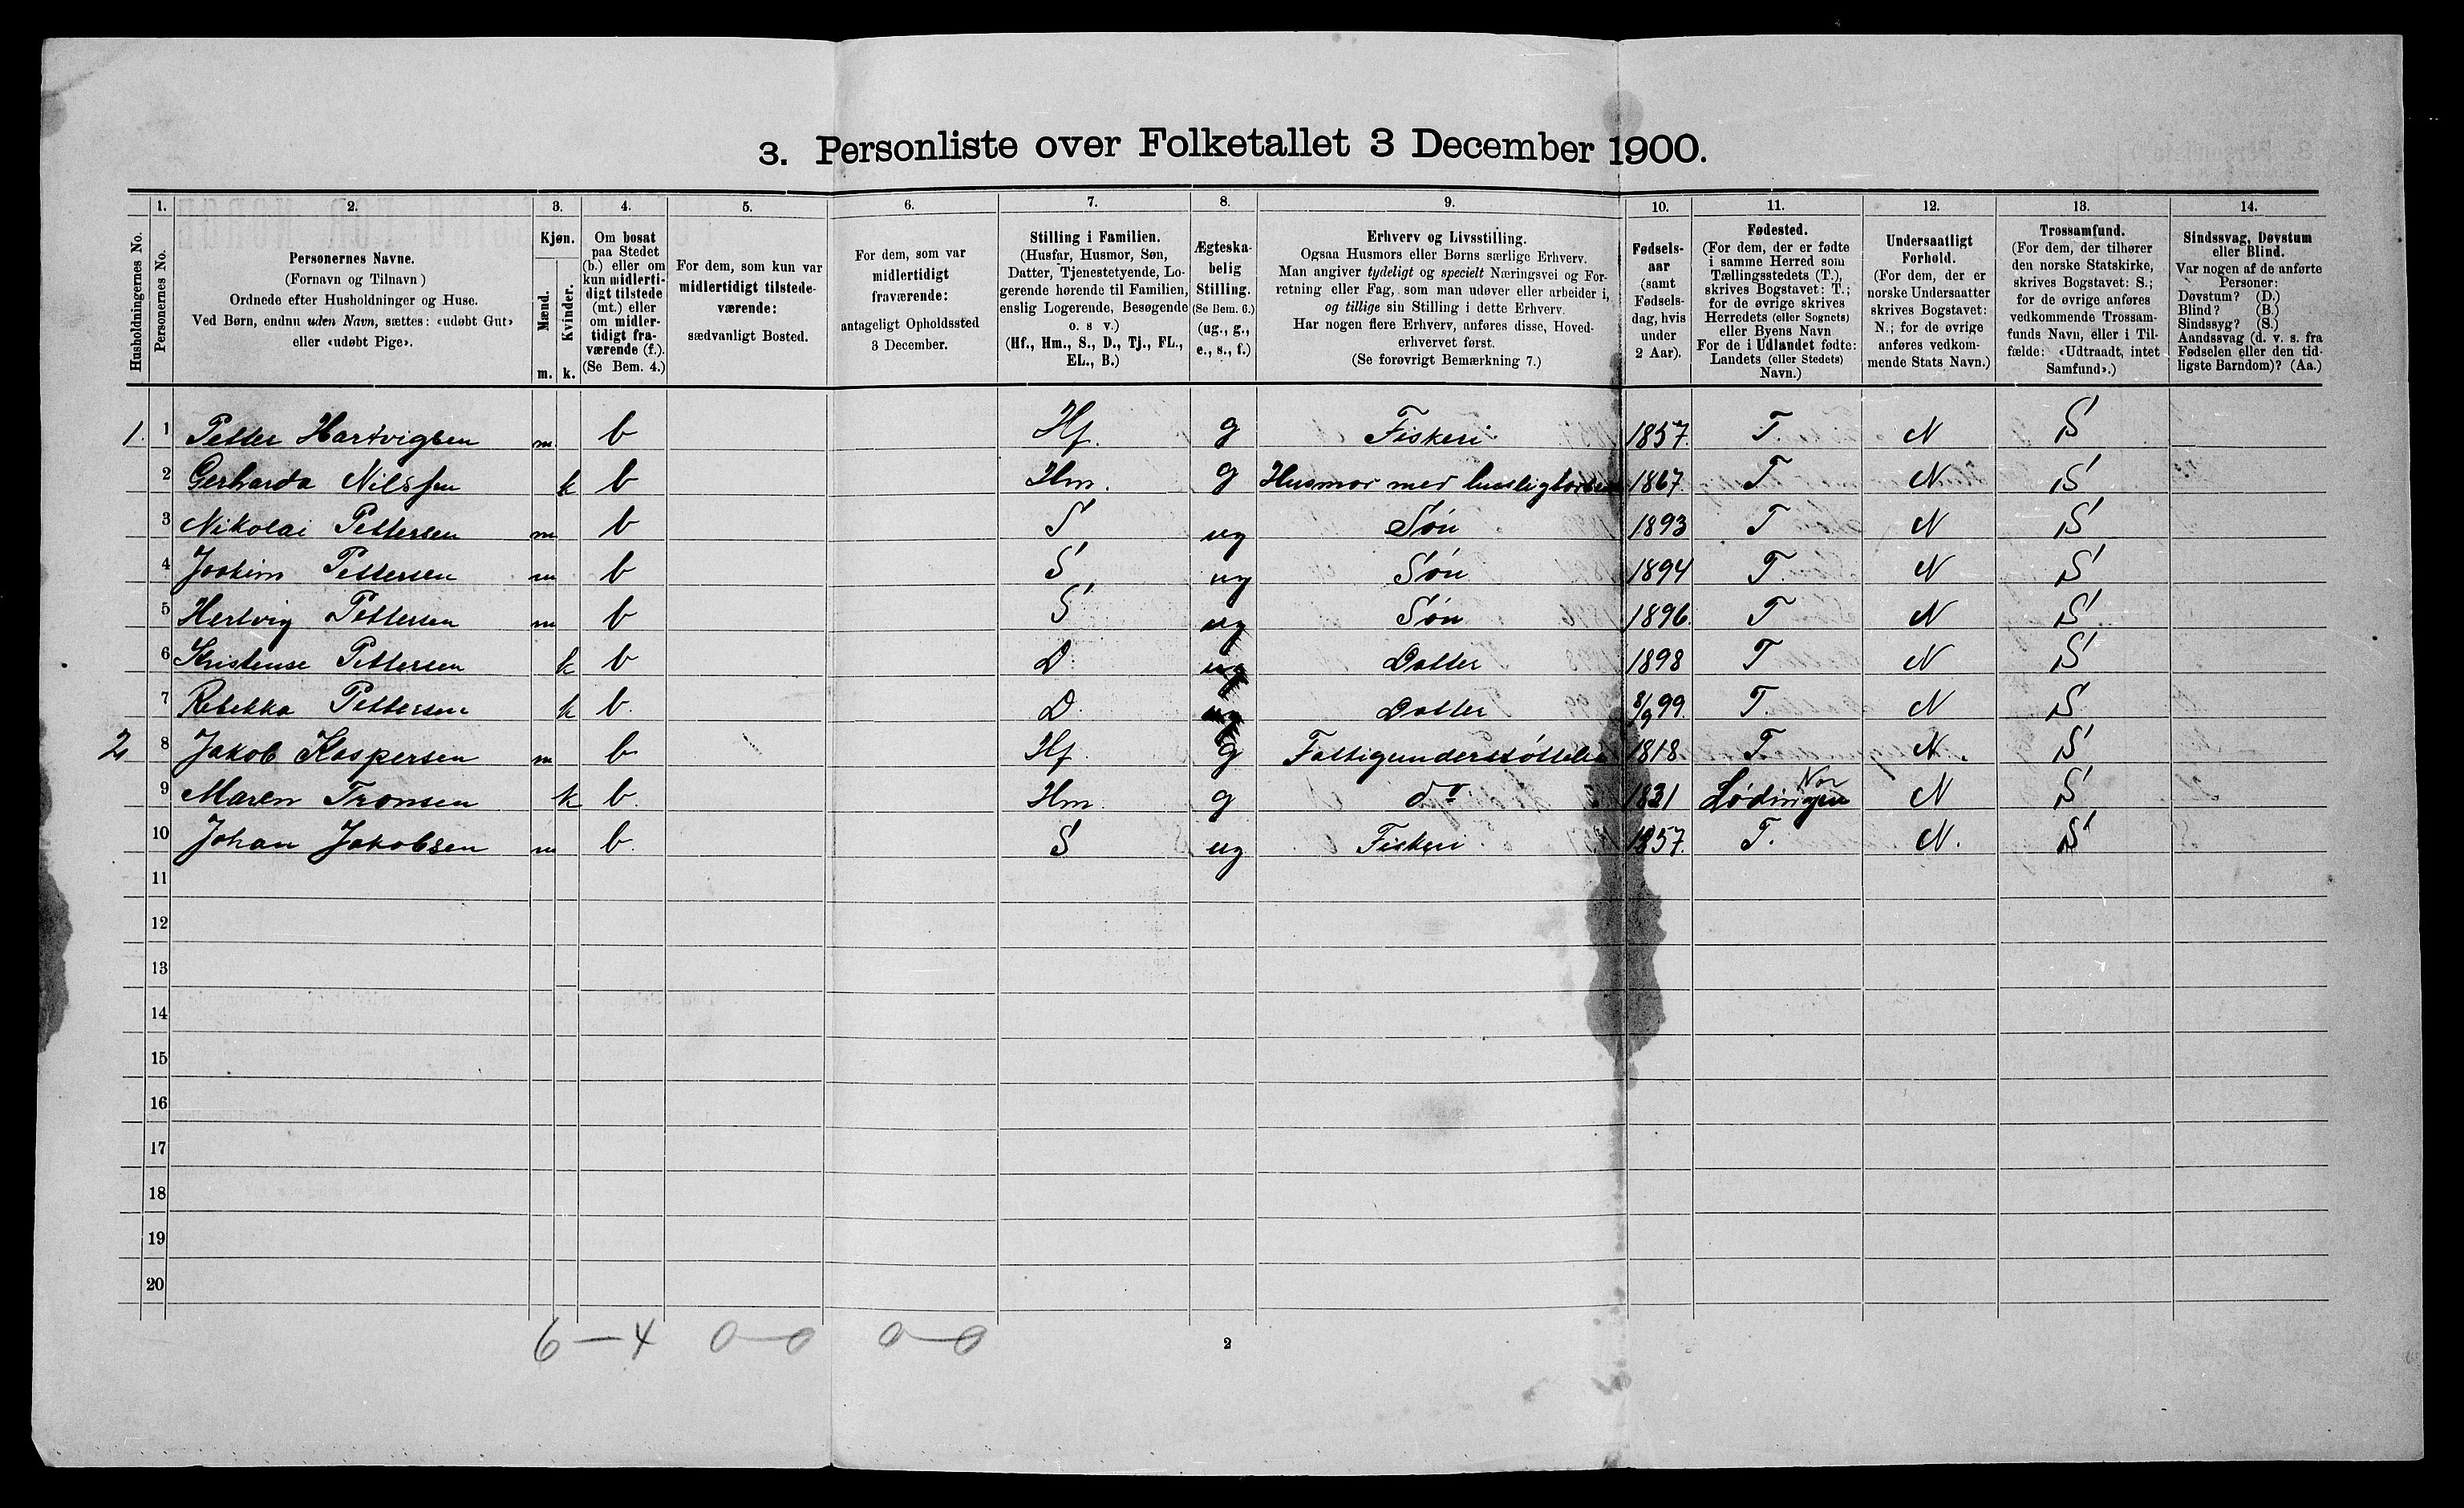 3. Personliste over Folketallet 3 December 1900.
Husholdningernes No.
1.
Personernes No.
2.
Personernes Navne.
(Fornavn og Tilnavn)
Ordnede efter Husholdninger og Huse.
Ved Børn, endnu uden Navn, sættes: «udøbt Gut»
eller «udøbt Pige».
3.
Kjøn.
Mænd.
m.
Kvinder.
k.
4.
Om bosat
paa Stedet
(b.) eller om
kun midlerti-
digt tilstede
(mt.) eller
om midler-
tidigt fra-
værende (f.).
(Se Bem. 4.)
5.
For dem, som kun var
midlertidigt tilstede-
værende:
sædvanligt Bosted.
6.
For dem, som var
midlertidigt
fraværende:
antageligt Opholdssted
3 December.
7.
Stilling i Familien.
(Husfar, Husmor, Søn,
Datter, Tjenestetyende, Lo-
gerende hørende til Familien,
enslig Logerende, Besøgende
o. s v.)
(Hf., Hm., S., D., Tj., FL.,
EL., B.)
8.
Ægteska-
belig
Stilling.
(Se Bem. 6.)
(ug., g.,
e., s., f.)
9.
Erhverv og Livsstilling.
Ogsaa Husmors eller Børns særlige Erhverv.
Man angiver tydeligt og specielt Næringsvei og For-
retning eller Fag, som man udøver eller arbeider i,
og tillige sin Stilling i dette Erhverv.
Har nogen flere Erhverv, anføres disse, Hoved-
erhvervet først.
(Se forøvrigt Bemærkning 7.)
10.
Fødsels-
aar
(samt
Fødsels-
dag, hvis
under
2 Aar).
11.
Fødested.
(For dem, der er fødte
i samme Herred som
Tællingsstedets (T.),
skrives Bogstavet: T.;
for de øvrige skrives
Herredets (eller Sognets)
eller Byens Navn
For de i Udlandet fødte:
Landets (eller Stedets)
Navn.)
12.
Undersaatligt
Forhold.
(For dem, der er
norske Undersaatter
skrives Bogstavet:
N.; for de øvrige
anføres vedkom-
mende Stats Navn.)
13.
Trossamfund.
(For dem, der tilhører
den norske Statskirke,
skrives Bogstavet: S.;
for de øvrige anføres
vedkommende Trossam-
funds Navn, eller i Til-
fælde: «Udtraadt, intet
Samfund».)
14.
Sindssvag, Døvstum
eller Blind.
Var nogen af de anførte
Personer:
Døvstum? (D.)
Blind? (B.)
Sindssyg? (S.)
Aandssvag (d. v. s. fra
Fødselen eller den tid-
ligste Barndom)? (Aa.)
1. 1 Petter Hartvigsen m. b Hf. g Fiskeri 1857. T. N S
2 Gerharda Nilssen k b Hm. g Husmor med husligtarbeide 1867. T N S
3 Nikolai Pettersen m b S ug Søn 1893 T N S
4 Joakim Pettersen m b S ug Søn 1894 T. N S
5 Hertvig Pettersen m b S ug Søn 1896. T N S
6 Kristense Pettersen k b D. Datter 1898 T N S
7 Rebekka Pettersen k b. D. Datter 8/9 99. T. N S
2 8 Jakob Kaspersen m b. Hf. g Fattigunderstøttelse 1818 T. N. S
9 Maren Tronsen k b. Hm. g do 1821 Lødingen Nor N S
10 Johan Jakobsen m b. S ug Fiskeri. 1857. T. N. S
11
12
13
14
15
16
17
18
19
20
6 — 4 0 — 0 0 — 0
2